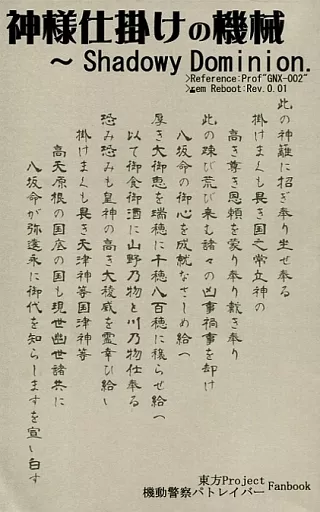 神様仕掛けの機械
~ Shadowy Dominion.
>Reference:Prof"GNX-002"
>Rem Reboot:Rev.0.01
此の神籬に招ぎ奉り坐せ奉る
掛けまくも畏き国之常立神の
高き尊き恩頼を蒙り奉り戴き奉り
此の疎び荒び来む諸々の凶事禍事を却け
八坂命の御心を成就なさしめ給へ
厚き大御恵を瑞穂に千穂八百穂に穣らせ給へ
以て御食御酒に山野乃物と川乃物仕奉る
恐み恐みも皇神の高き大稜威を霊幸ひ給い
掛けまくも畏き天津神等国津神等
高天原根の国底の国も現世幽世諸共に
八坂命が弥遠永に御代を知らしますを宣い白す
東方Project
機動警察パトレイバー
Fanbook